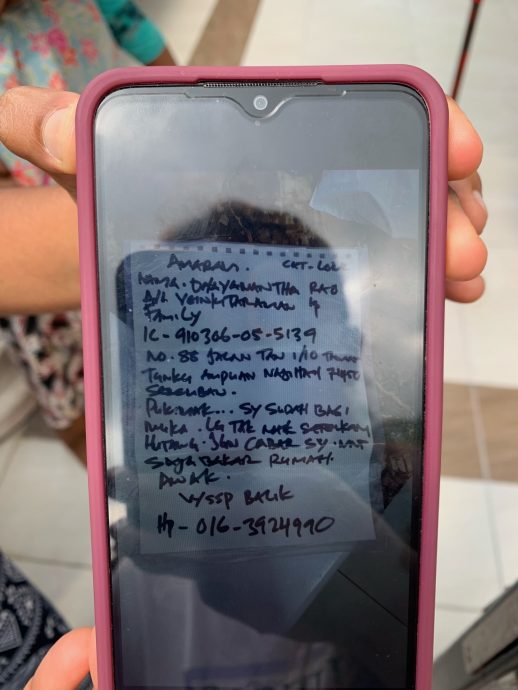 AMARAN.
NAMA. DHAYANANTHA RAO
A/L VENKITARAMAN &
FAMILY
IC - 910306-05-5139
NO. 88 JALAN TAN 1/10 TAMAN
TUNKU AMPUAN NAJIHAH
SEREMBAN.
PUKIMAK... SY SUDAH BAGI
MUKA. LG TAK NAK SETELKAN
HUTANG. JGN CABAR SY. NNT
SAYA BAKAR RUMAH.
AWAK.
W/SSP BALIK
HP - 016-3924990